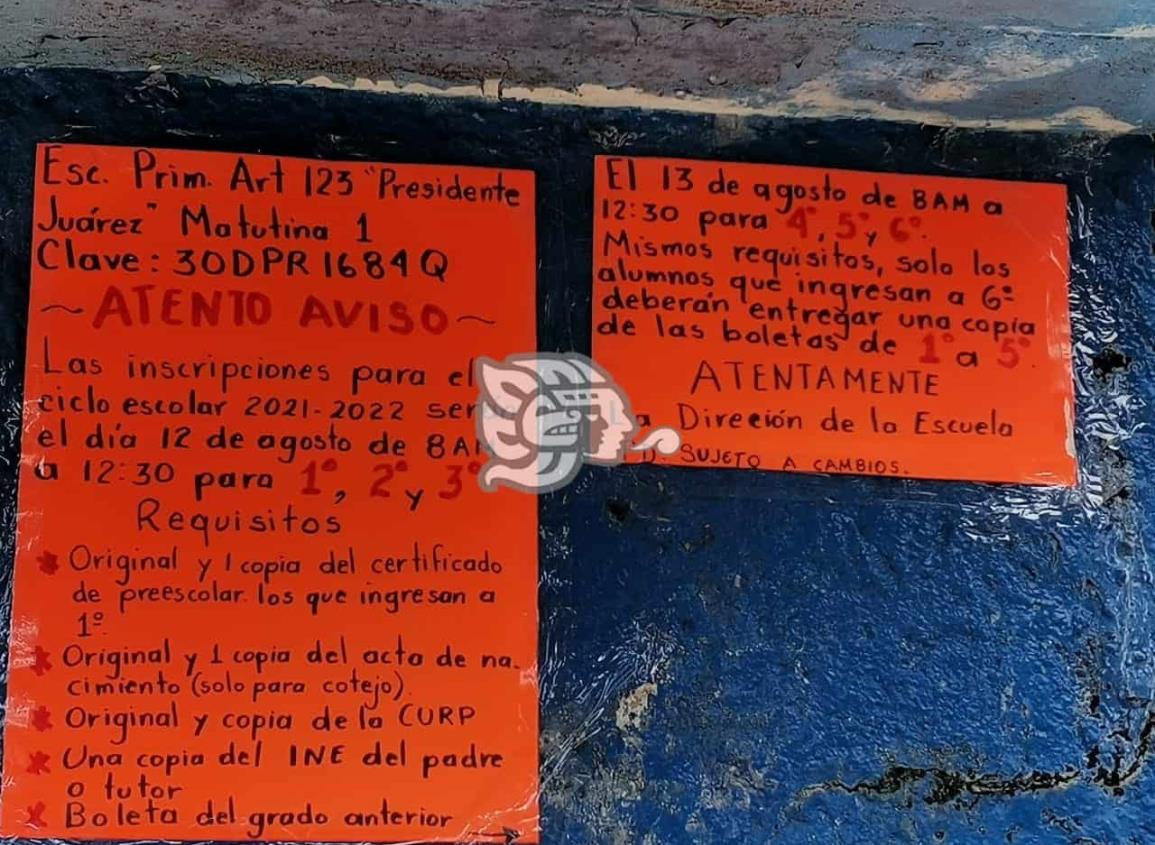 Esc. Prim. Art 123 "Presidente
Juárez" Matutina 1
Clave: 30DPR1684Q
~ATENTO AVISO~
Las inscripciones para el
ciclo escolar 2021-2022
el día 12 de agosto de 8AM
a 12:30 para 1º, 2º y 3º
Requisitos
* Original y 1 copia del certificado
de preescolar. los que ingresan a
1º.
* Original y 1 copia del acta de na-
cimiento (solo para cotejo).
* Original y copia de la CURP
* Una copia del INE del padre
o tutor
* Boleta del grado anterior →
El 13 de agosto de 8AM a
12:30 para 4º, 5º y 6º.
Mismos requisitos, solo los
alumnos que ingresan a 6º
deberán entregar una copia
de las boletas de 1º a 5º.
ATENTAMENTE
La Direción de la Escuela
SUJETO A CAMBIOS.